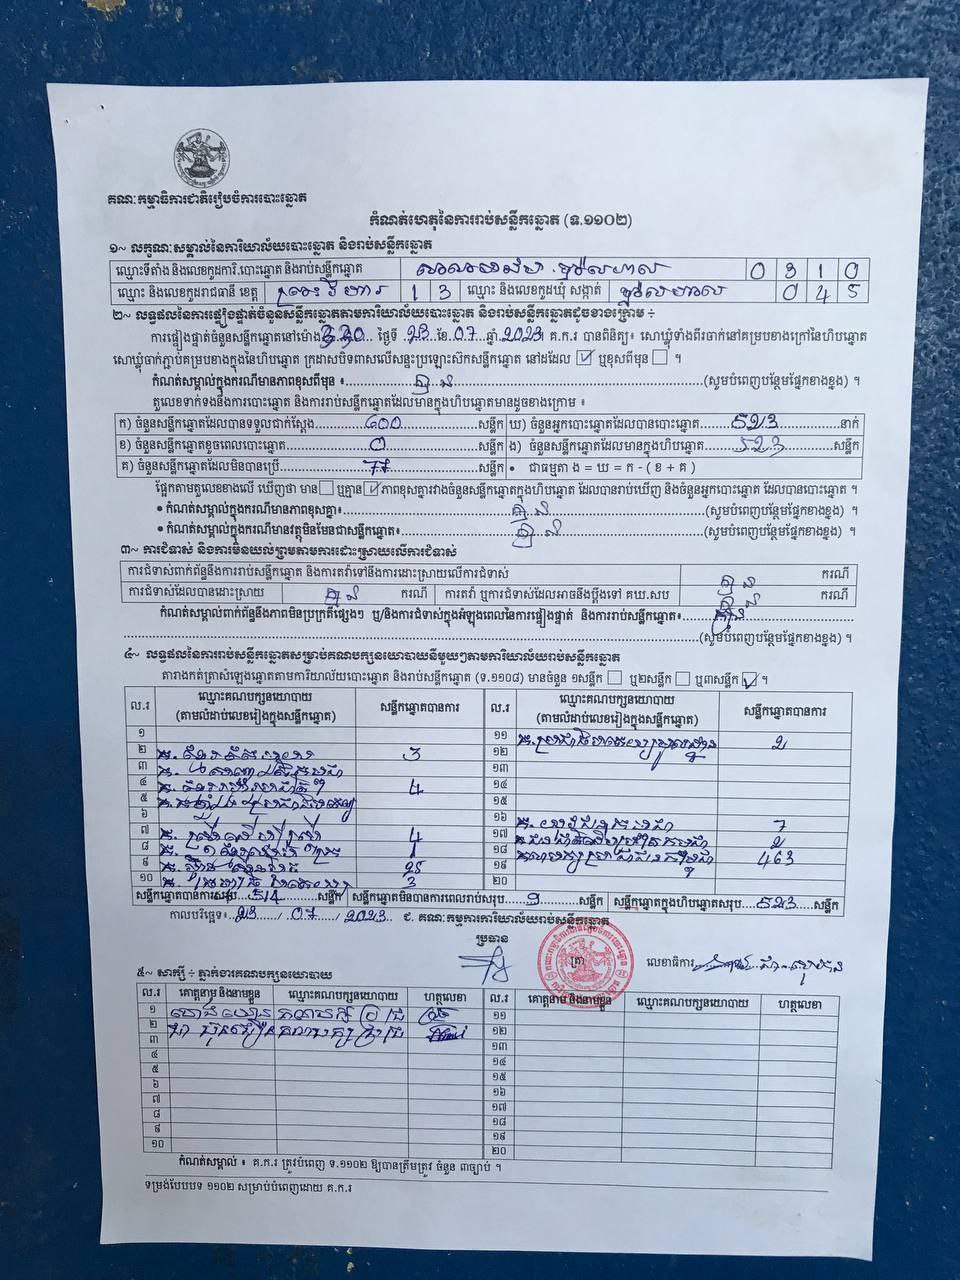 គណៈកម្មាធិការជាតិរៀបចំការបោះឆ្នោត
កំណត់ហេតុនៃការរាប់សន្លឹកឆ្នោត (ទ.១១០២)
១~ លក្ខណៈសម្គាល់នៃការិយាល័យបោះឆ្នោត និងរាប់សន្លឹកឆ្នោត
ឈ្មោះទីតាំង និងលេខកូដការិ.បោះឆ្នោត និងរាប់សន្លឹកឆ្នោត 0 3 1 0
ឈ្មោះ និងលេខកូដរាជធានី ខេត្ត ព្រះវិហារ 1 3 ឈ្មោះ និងលេខកូដឃុំ សង្កាត់ 0 4 5
២~ លទ្ធផលនៃការផ្ទៀងផ្ទាត់ចំនួនសន្លឹកឆ្នោតតាមការិយាល័យបោះឆ្នោត និងរាប់សន្លឹកឆ្នោតដូចខាងក្រោម ÷
ការផ្ទៀងផ្ទាត់ចំនួនសន្លឹកឆ្នោតនៅម៉ោង 3:30 ថ្ងៃទី 23 ខែ 07 ឆ្នាំ 2023 គ.ក.រ បានពិនិត្យ៖ សោឃ្លុំទាំងពីរចាក់នៅគម្របខាងក្រៅនៃហិបឆ្នោត
សោឃ្លុំចាក់ភ្ជាប់គម្របខាងក្នុងនៃហិបឆ្នោត ក្រដាសបិទពាសលើសន្ទះប្រឡោះស៊កសន្លឹកឆ្នោត នៅដដែល ☑ ឬខុសពីមុន ☐ ។
កំណត់សម្គាល់ក្នុងករណីមានភាពខុសពីមុន ៖ គ្មាន (សូមបំពេញបន្ថែមផ្នែកខាងខ្នង) ។
តួលេខទាក់ទងនឹងការបោះឆ្នោត និងការរាប់សន្លឹកឆ្នោតដែលមានក្នុងហិបឆ្នោតមានដូចខាងក្រោម ៖
ក) ចំនួនសន្លឹកឆ្នោតដែលបានទទួលជាក់ស្តែង 600 សន្លឹក ឃ) ចំនួនអ្នកបោះឆ្នោតដែលបានបោះឆ្នោត 523 នាក់
ខ) ចំនួនសន្លឹកឆ្នោតខូចពេលបោះឆ្នោត 0 សន្លឹក ង) ចំនួនសន្លឹកឆ្នោតដែលមានក្នុងហិបឆ្នោត 523 សន្លឹក
គ) ចំនួនសន្លឹកឆ្នោតដែលមិនបានប្រើ 77 សន្លឹក • ជាធម្មតា ង = ឃ = ក - ( ខ + គ )
ផ្អែកតាមតួលេខខាងលើ ឃើញថា មាន ☐ ឬគ្មាន ☑ ភាពខុសគ្នារវាងចំនួនសន្លឹកឆ្នោតក្នុងហិបឆ្នោត ដែលបានរាប់ឃើញ និងចំនួនអ្នកបោះឆ្នោត ដែលបានបោះឆ្នោត ។
• កំណត់សម្គាល់ក្នុងករណីមានភាពខុសគ្នា៖ គ្មាន (សូមបំពេញបន្ថែមផ្នែកខាងខ្នង) ។
• កំណត់សម្គាល់ក្នុងករណីមានវត្ថុមិនមែនជាសន្លឹកឆ្នោត៖ គ្មាន (សូមបំពេញបន្ថែមផ្នែកខាងខ្នង) ។
៣~ ការជំទាស់ និងការមិនយល់ព្រមតាមការដោះស្រាយលើការជំទាស់
ការជំទាស់ពាក់ព័ន្ធនឹងការរាប់សន្លឹកឆ្នោត និងការតវ៉ាទៅនឹងការដោះស្រាយលើការជំទាស់ គ្មាន ករណី
ការជំទាស់ដែលបានដោះស្រាយ គ្មាន ករណី ការតវ៉ា ឬការជំទាស់ដែលអាចនឹងប្តឹងទៅ គឃ.សប គ្មាន ករណី
កំណត់សម្គាល់ពាក់ព័ន្ធនឹងភាពមិនប្រក្រតីផ្សេងៗ ឬ/និងការជំទាស់ក្នុងអំឡុងពេលនៃការផ្ទៀងផ្ទាត់ និងការរាប់សន្លឹកឆ្នោត៖ គ្មាន
(សូមបំពេញបន្ថែមផ្នែកខាងខ្នង) ។
៤~ លទ្ធផលនៃការរាប់សន្លឹកឆ្នោតសម្រាប់គណបក្សនយោបាយនីមួយៗតាមការិយាល័យរាប់សន្លឹកឆ្នោត
តារាងកត់ត្រាសំឡេងឆ្នោតតាមការិយាល័យបោះឆ្នោត និងរាប់សន្លឹកឆ្នោត (ទ.១១០៨) មានចំនួន ១សន្លឹក ☐ ឬ២សន្លឹក ☐ ឬ៣សន្លឹក ☑ ។
ល.រ ឈ្មោះគណបក្សនយោបាយ (តាមលំដាប់លេខរៀងក្នុងសន្លឹកឆ្នោត) សន្លឹកឆ្នោតបានការ ល.រ ឈ្មោះគណបក្សនយោបាយ (តាមលំដាប់លេខរៀងក្នុងសន្លឹកឆ្នោត) សន្លឹកឆ្នោតបានការ
១ ១១ 2
២ 3 ១២
៣ ១៣
៤ 4 ១៤
៥ ១៥
៦ ១៦ 7
៧ 4 ១៧ 2
៨ 1 ១៨ 463
៩ 25 ១៩
១០ 3 ២០
សន្លឹកឆ្នោតបានការសរុប 514 សន្លឹក សន្លឹកឆ្នោតមិនបានការពេលរាប់សរុប 9 សន្លឹក សន្លឹកឆ្នោតក្នុងហិបឆ្នោតសរុប 523 សន្លឹក
កាលបរិច្ឆេទ៖ 23 / 07 / 2023 ជ. គណៈកម្មការការិយាល័យរាប់សន្លឹកឆ្នោត
ប្រធាន
ត្រា លេខាធិការ
៥~ សាក្សី ÷ ភ្នាក់ងារគណបក្សនយោបាយ
ល.រ គោត្តនាម និងនាមខ្លួន ឈ្មោះគណបក្សនយោបាយ ហត្ថលេខា ល.រ គោត្តនាម និងនាមខ្លួន ឈ្មោះគណបក្សនយោបាយ ហត្ថលេខា
១ ១១
២ ១២
៣ ១៣
៤ ១៤
៥ ១៥
៦ ១៦
៧ ១៧
៨ ១៨
៩ ១៩
១០ ២០
កំណត់សម្គាល់ ៖ គ.ក.រ ត្រូវបំពេញ ទ.១១០២ ឱ្យបានត្រឹមត្រូវ ចំនួន ៣ច្បាប់ ។
ទម្រង់បែបបទ ១១០២ សម្រាប់បំពេញដោយ គ.ក.រ